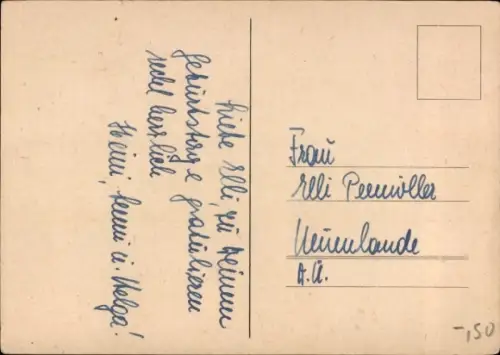 Liebe Elli, zu Deinem
Geburtstage gratulieren
recht herzlich
Heini, Leni u. Helga!
Frau
Elli Penmöller
Neuenlande
A. U.
-,150